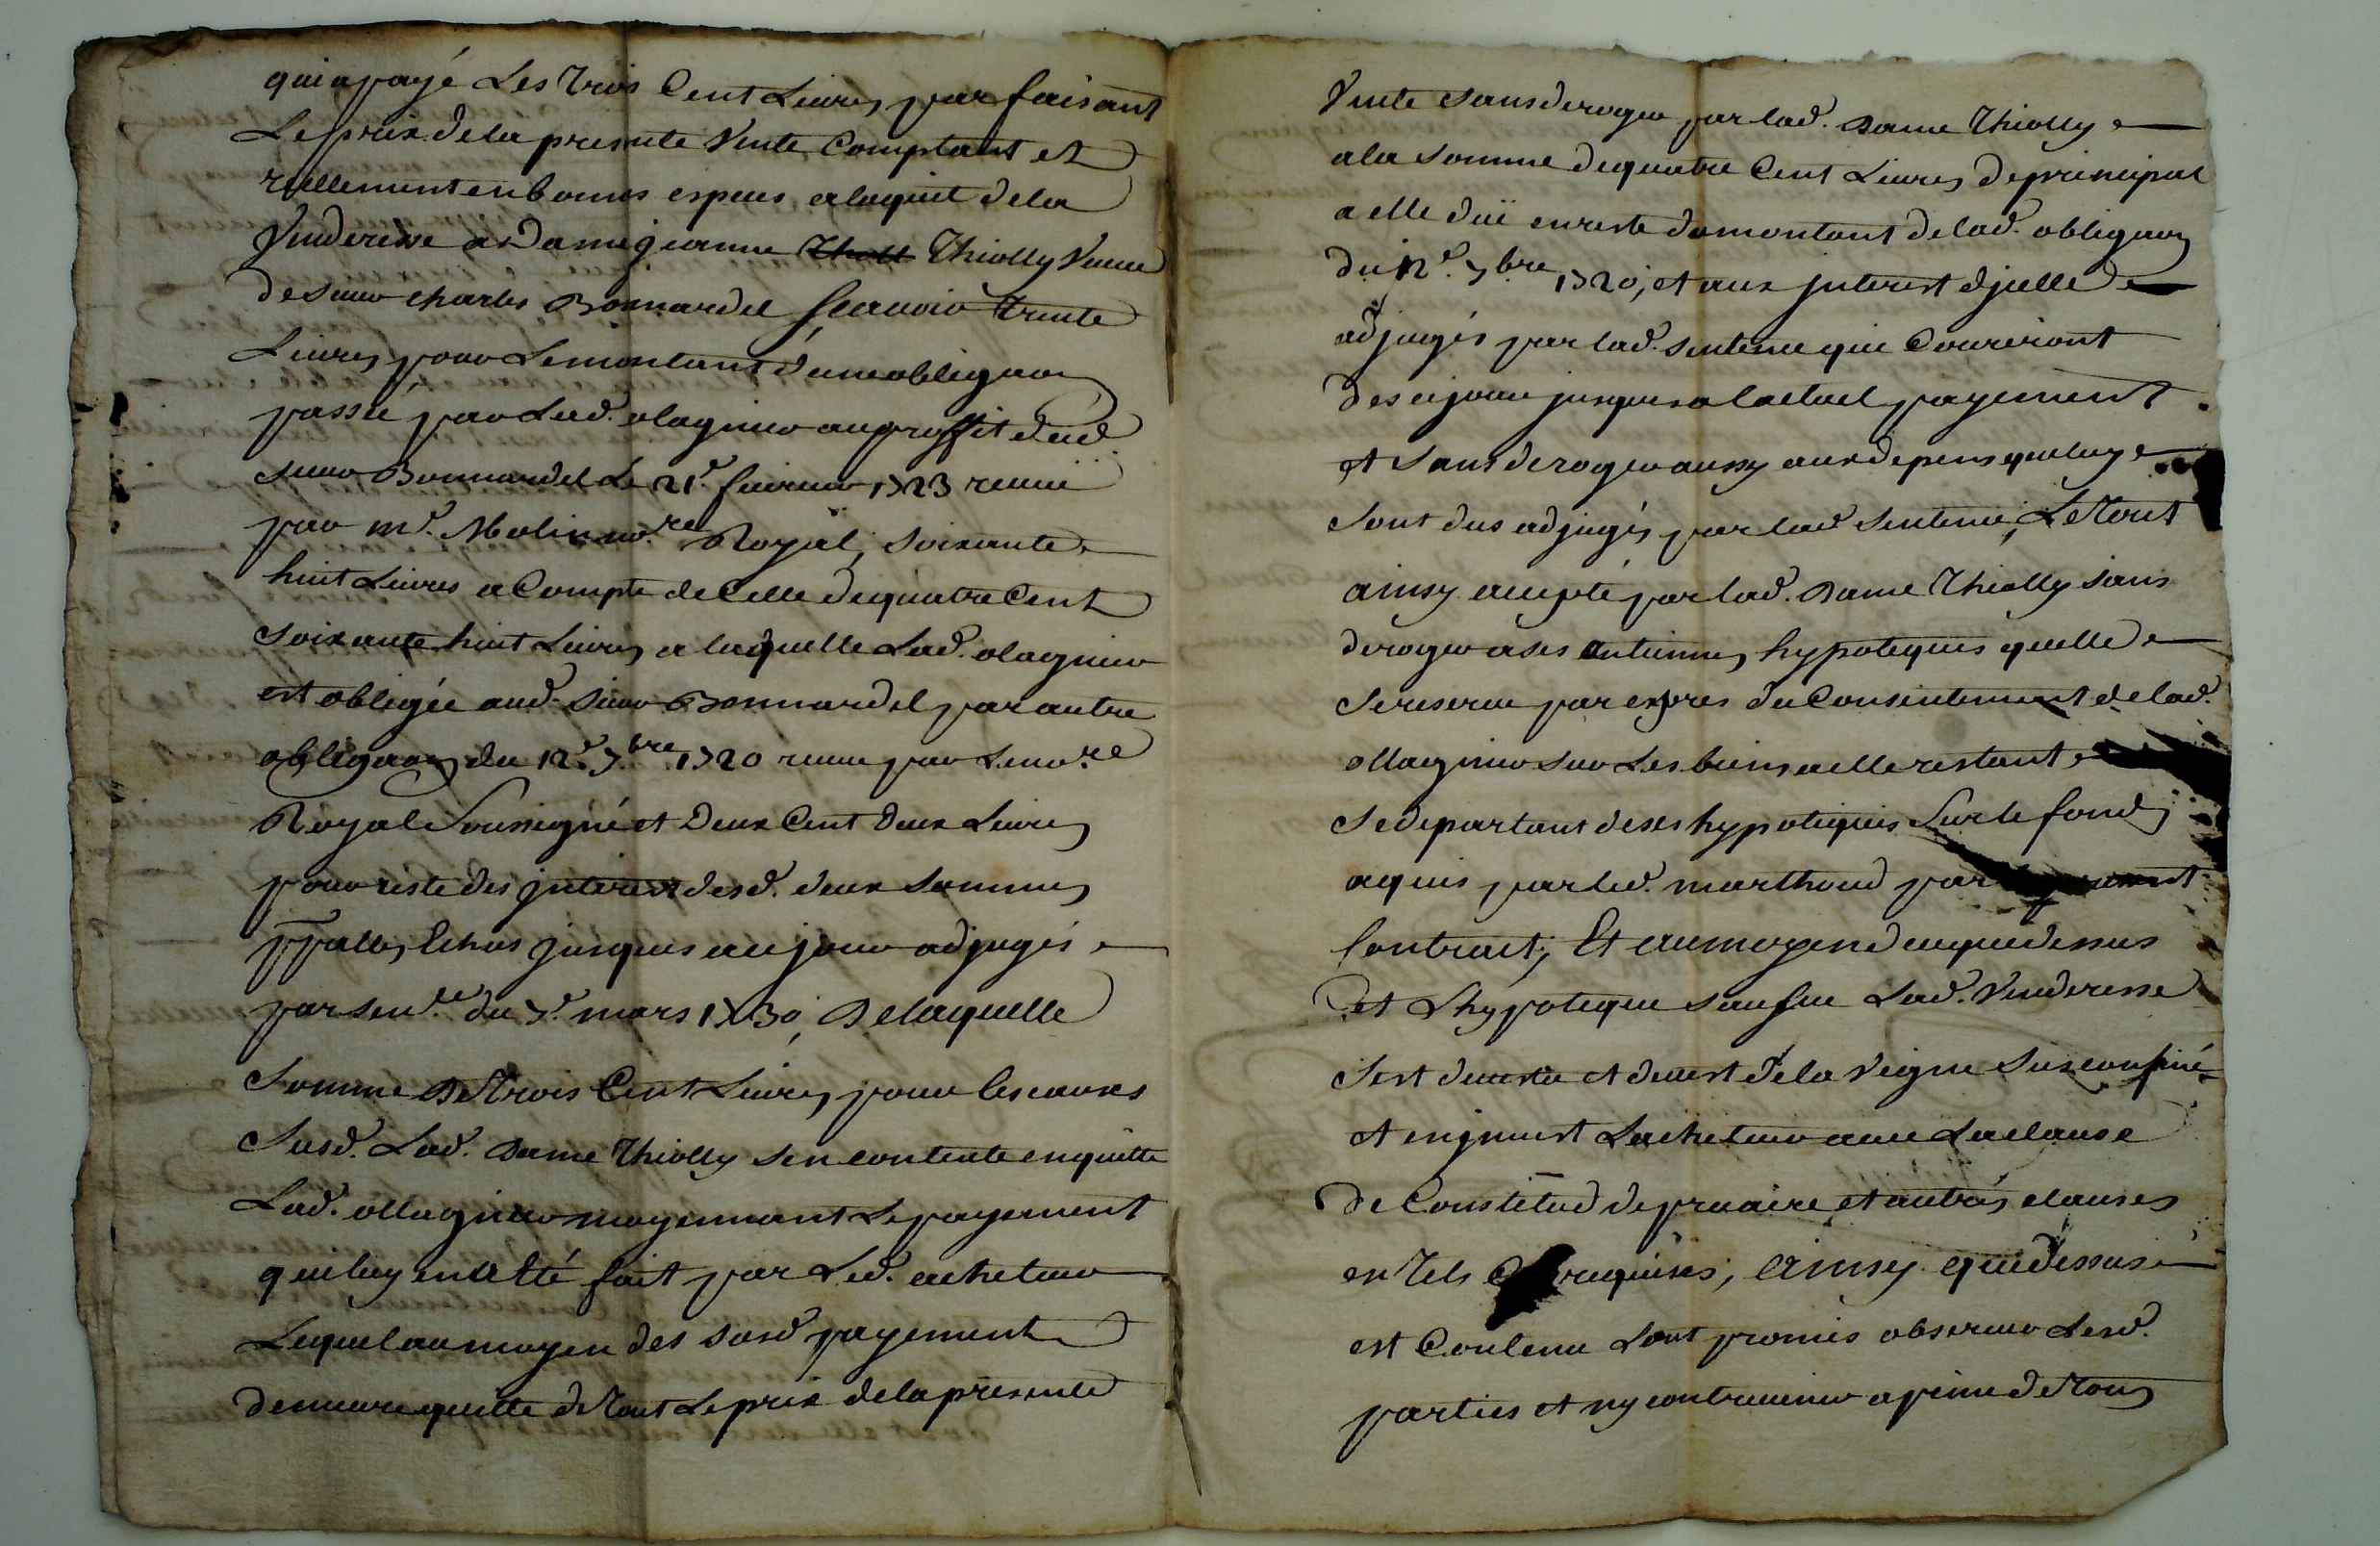 qui a payé Les Trois Cent Livres par faisant
Le prix de la presente Vente Comptant et
reellement en bonnes especes a laquit de la
Venderesse a Dame jeanne Thiolly Veuve
de sieur charles Bonnardel scavoir trente
Livres pour Le montant d'une obligaon
passée par Lad. olagnier au proffit dud.
sieur Bonnardel Le 21e. fevrier 1723 receüe
par me. Molin nore. Royal, soixante
huit Livres a Compte de Celle de quatre Cent
soixante huit Livres a laquelle Lad. olagnier
est obligée aud. sieur Bonnardel par autre
obligaon du 12e. 7bre 1720 receue par Le nore.
Royal soussigné et Deux Cent deux Livres
pour reste des jnterest desd. deux sommes
ppalles Echus jusques au jour adjugés
par senee. du 7e. mars 1730, De laquelle
somme De Trois Cent Livres pour les causes
susd. Lad. Dame Thiolly sen contente en quitte
Lad. ollagnier moyennant Le payement
qui luy en a Eté fait par Led. acheteur
Lequel au moyen des susd. payement
demeure quitte de Tout Le prix de la presente
Vente sans deroger par lad. Dame Thiolly
a la somme de quatre Cent Livres de principal
a elle düe en reste du montant de lad. obligaon
du 12e. 7bre 1720, et aux jnterest djcelle
adjugés par lad. sentence qui Coureront
des ce jour jusques a lactuel payement
et sans deroger aussy aux depens que luy
sont dus adjugés par lad. sentence, Le Tout
ainsy accepté par lad. Dame Thiolly sans
deroger a ses antiennes hypoteques quelle
se reserve par expres du Consentement de lad.
ollagnier sur Les biens a elle restant
se departant de ses hypoteques sur le fond
aquis par led. marthoud par
Contract, Et au moyen de ce que dessus
et Lhypoteque sauf ue Lad. Venderesse
sest devestue et devest de la vigne sus confiné
et en jnvest Lacheteur avec La clause
de Constitud de praire et autres clauses
en Tels requises, Ainsy que dessus
est Contenu Lont promis observer Lesd.
parties et ny contrevenir a peine de Tous